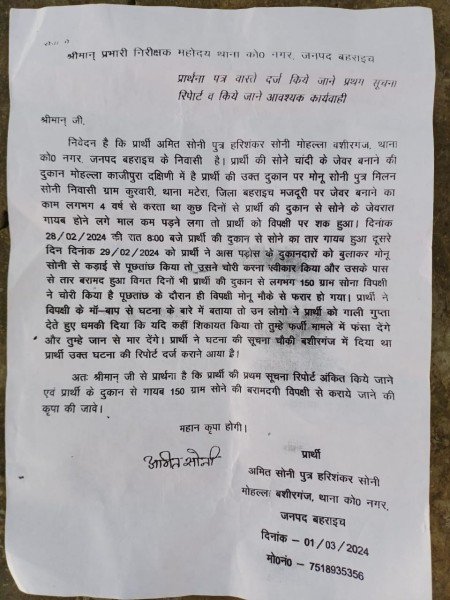 सेवा में
श्रीमान् प्रभारी निरीक्षक महोदय थाना को0 नगर, जनपद बहराइच
प्रार्थना पत्र वास्ते दर्ज किये जाने प्रथम सूचना
रिपोर्ट व किये जाने आवश्यक कार्यवाही
श्रीमान् जी,
निवेदन है कि प्रार्थी अमित सोनी पुत्र हरिशंकर सोनी मोहल्ला वशीरगंज, थाना
को0 नगर, जनपद बहराइच के निवासी है। प्रार्थी की सोने चांदी के जेवर बनाने की
दुकान मोहल्ला काजीपुरा दक्षिणी में है प्रार्थी की उक्त दुकान पर मोनू सोनी पुत्र मिलन
सोनी निवासी ग्राम कुरवारी, थाना मटेरा, जिला बहराइच मजदूरी पर जेवर बनाने का
काम लगभग 4 वर्ष से करता था कुछ दिनों से प्रार्थी की दुकान से सोने के जेवरात
गायब होने लगे माल कम पड़ने लगा तो प्रार्थी को विपक्षी पर शक हुआ। दिनांक
28/02/2024 की रात 8:00 बजे प्रार्थी की दुकान से सोने का तार गायब हुआ दूसरे
दिन दिनांक 29/02/2024 को प्रार्थी ने आस पड़ोस के दुकानदारों को बुलाकर मोनू
सोनी से कड़ाई से पूछतांछ किया तो उसने चोरी करना स्वीकार किया और उसके पास
से तार बरामद हुआ विगत दिनों भी प्रार्थी की दुकान से लगभग 150 ग्राम सोना विपक्षी
ने चोरी किया है पूछतांछ के दौरान ही विपक्षी मोनू मौके से फरार हो गया। प्रार्थी ने
विपक्षी के माँ–बाप से घटना के बारे में बताया तो उन लोगो ने प्रार्थी को गाली गुप्ता
देते हुए धमकी दिया कि यदि कहीं शिकायत किया तो तुम्हे फर्जी मामले में फंसा देंगे
और तुम्हे जान से मार देंगे। प्रार्थी ने घटना की सूचना चौकी बशीरगंज में दिया था
प्रार्थी उक्त घटना की रिपोर्ट दर्ज कराने आया है।
अतः श्रीमान् जी से प्रार्थना है कि प्रार्थी की प्रथम सूचना रिपोर्ट अंकित किये जाने
एवं प्रार्थी के दुकान से गायब 150 ग्राम सोने की बरामदगी विपक्षी से कराये जाने की
कृपा की जावे।
महान कृपा होगी।
अमित सोनी
प्रार्थी
अमित सोनी पुत्र हरिशंकर सोनी
मोहल्ला बशीरगंज, थाना को0 नगर,
जनपद बहराइच
दिनांक – 01/03/2024
मो0नं0 – 7518935356